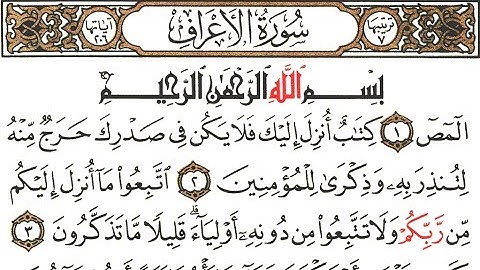 ترتيبها ٧ سُورَةُ الأَعْرَافِ آياتها ٢٠٦
بِسْمِ ٱللَّهِ ٱلرَّحْمَٰنِ ٱلرَّحِيمِ
الٓمٓصٓ ١ كِتَٰبٌ أُنزِلَ إِلَيْكَ فَلَا يَكُن فِى صَدْرِكَ حَرَجٌ مِّنْهُ
لِتُنذِرَ بِهِۦ وَذِكْرَىٰ لِلْمُؤْمِنِينَ ٢ ٱتَّبِعُوا۟ مَآ أُنزِلَ إِلَيْكُم
مِّن رَّبِّكُمْ وَلَا تَتَّبِعُوا۟ مِن دُونِهِۦٓ أَوْلِيَآءَ ۗ قَلِيلًا مَّا تَذَكَّرُونَ ٣